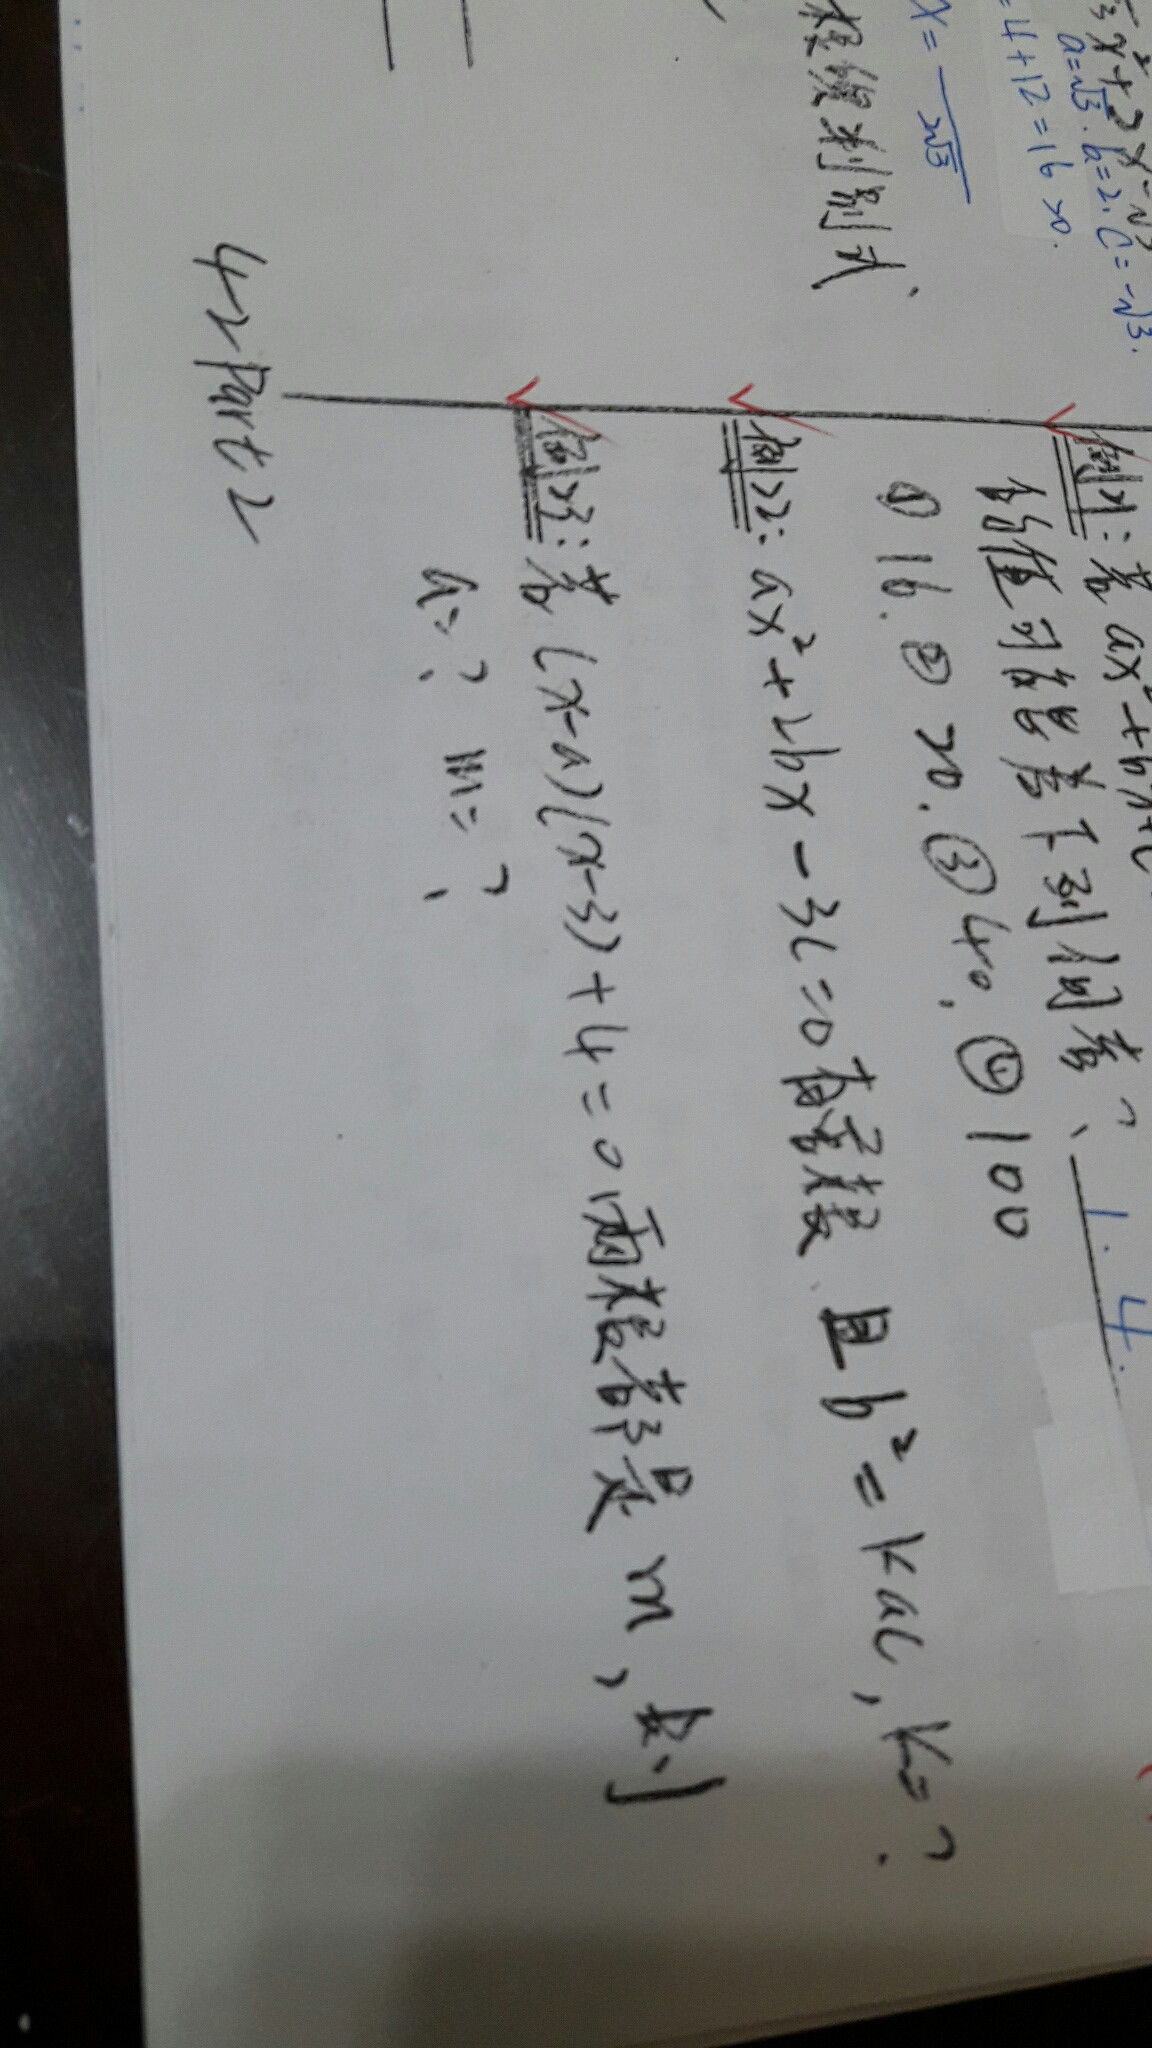 3x²+2x-√3
a=√3. b=2. c=-√3.
=4+12=16>0.
x=
2√3
根與判別式
例1:若ax²+bx+c
的值可能為下列何者? 1. 4.
① 16. ② 20. ③ 40. ④ 100
例2: ax²+2bx-3c=0有重根 且b²=kac, k=?
例3:若(x-a)(x-3)+4=0兩根皆是m,則
a=? m=?
4-2 Part 2